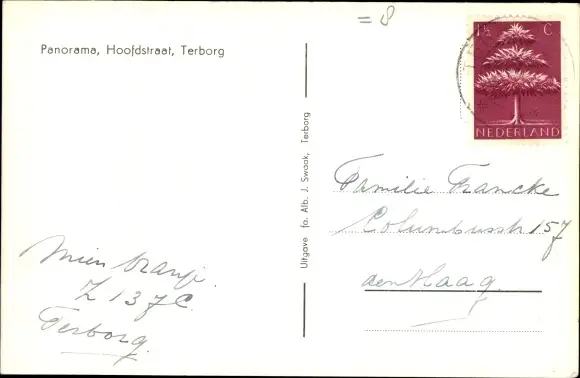 = 8
Panorama, Hoofdstraat, Terborg
1½ C
NEDERLAND
Uitgave fa. Alb. J. Swaak, Terborg
Familie Francke
Columbusstr 157
den Haag
Mien
Z 137 C.
Terborg.